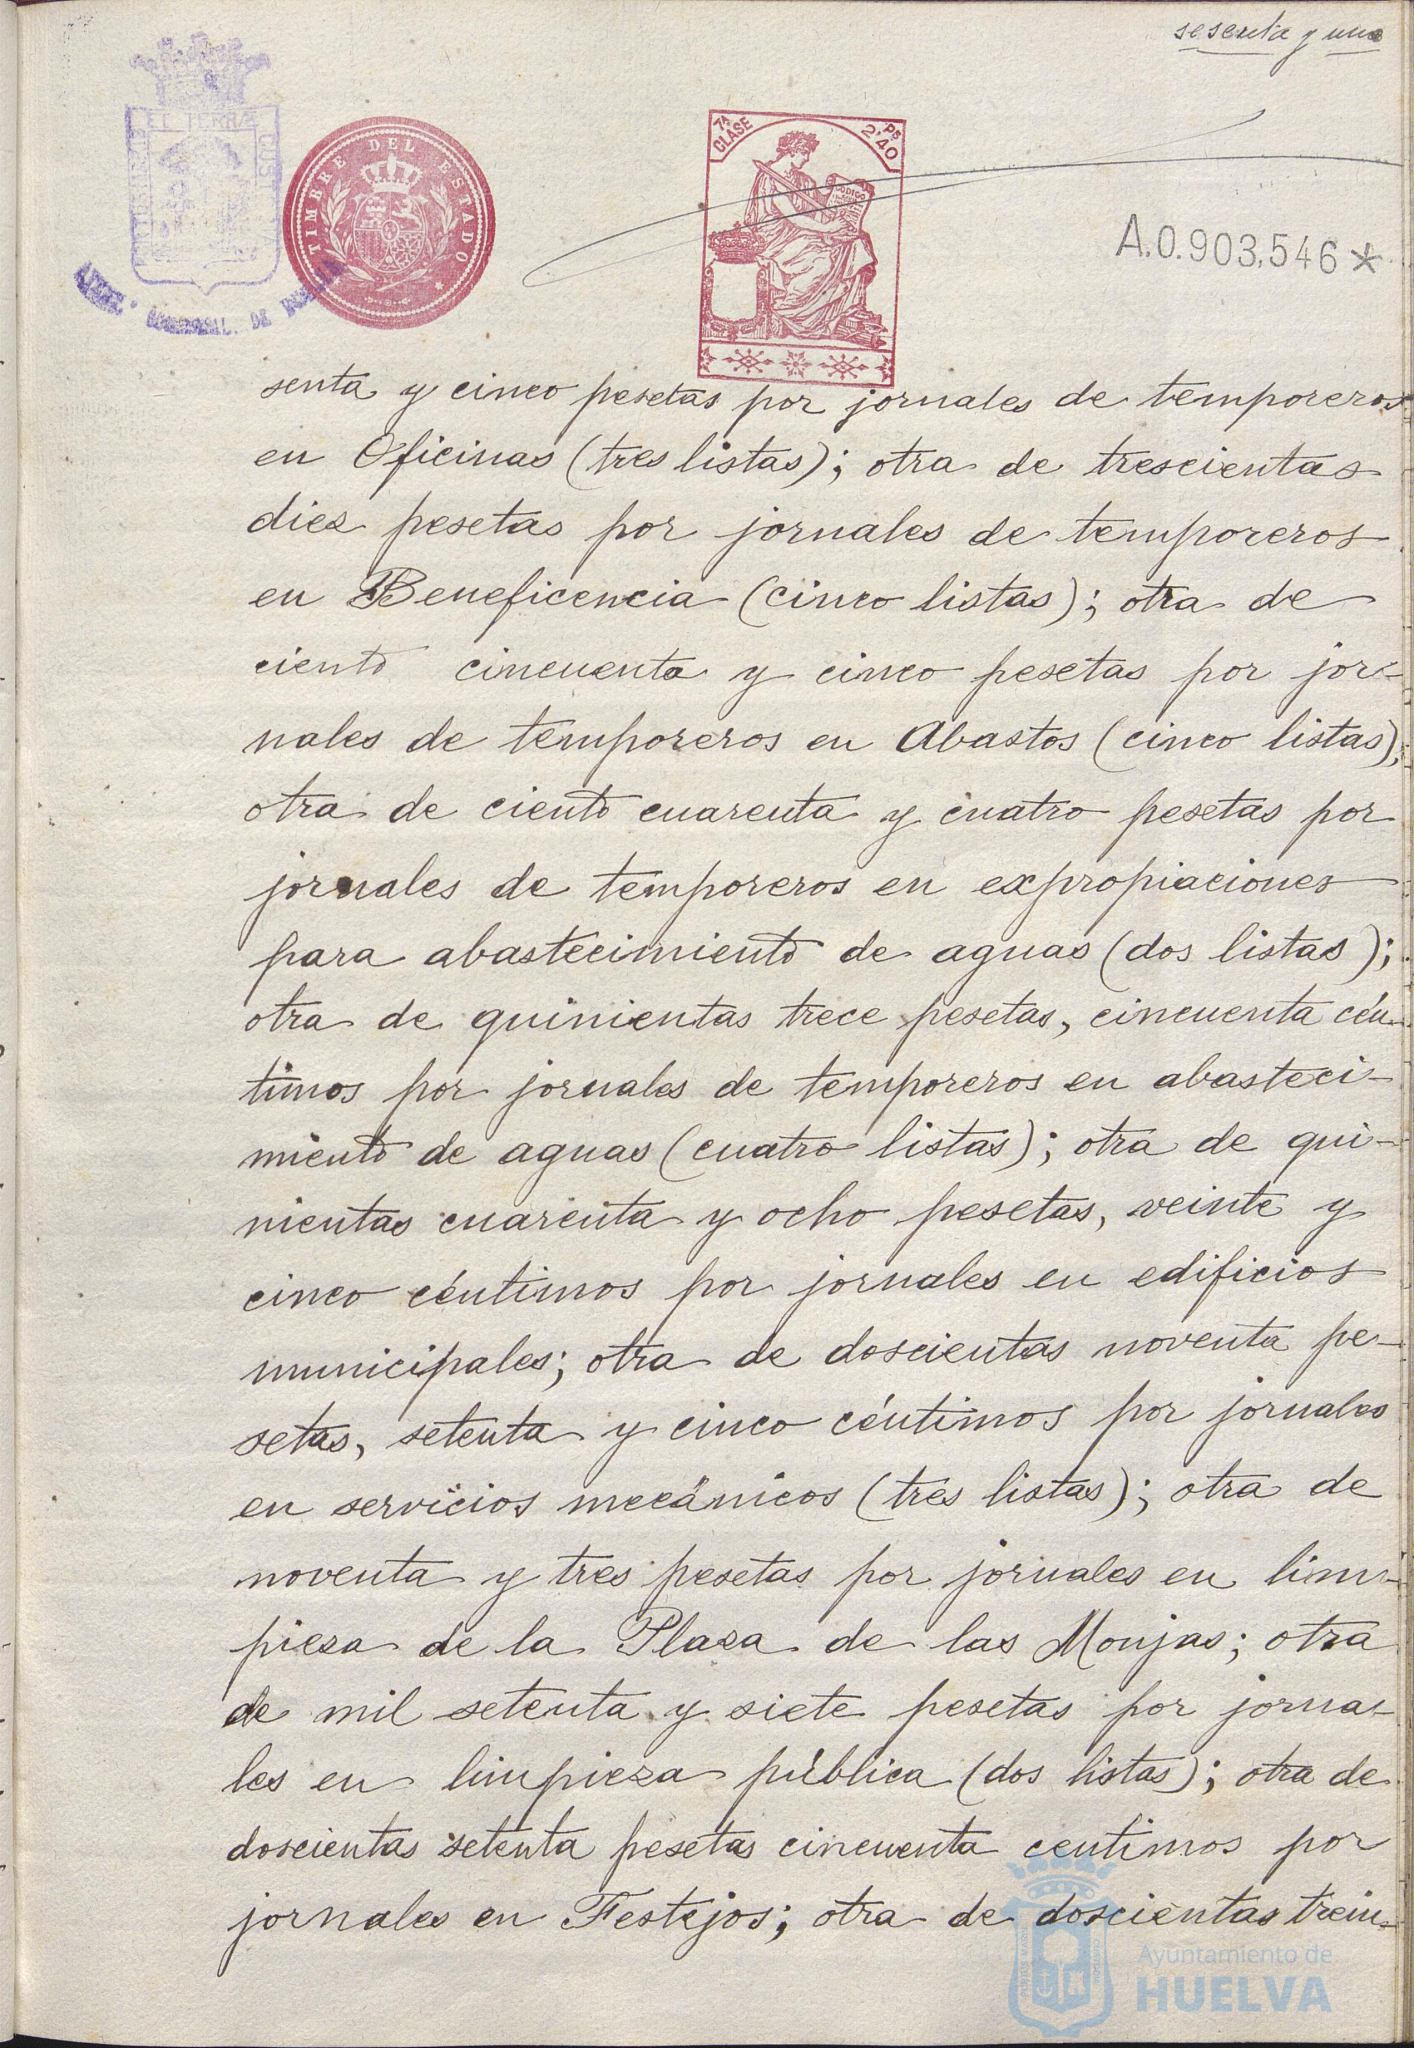 sesenta y uno
TIMBRE DEL ESTADO
7ª CLASE
2'40 Ps
CODIGO
A.0.903,546*
senta y cinco pesetas por jornales de temporeros
en Oficinas (tres listas); otra de trescientas
diez pesetas por jornales de temporeros
en Beneficencia (cinco listas); otra de
ciento cincuenta y cinco pesetas por jor-
nales de temporeros en Abastos (cinco listas);
otra de ciento cuarenta y cuatro pesetas por
jornales de temporeros en expropiaciones
para abastecimiento de aguas (dos listas);
otra de quinientas trece pesetas, cincuenta cén-
timos por jornales de temporeros en abasteci-
miento de aguas (cuatro listas); otra de qui-
nientas cuarenta y ocho pesetas, veinte y
cinco céntimos por jornales en edificios
municipales; otra de doscientas noventa pe-
setas, setenta y cinco céntimos por jornales
en servicios mecánicos (tres listas); otra de
noventa y tres pesetas por jornales en lim-
pieza de la Plaza de las Monjas; otra
de mil setenta y siete pesetas por jorna-
les en limpieza pública (dos listas); otra de
doscientas setenta pesetas cincuenta centimos por
jornales en Festejos; otra de doscientas trein-
Ayuntamiento de
HUELVA